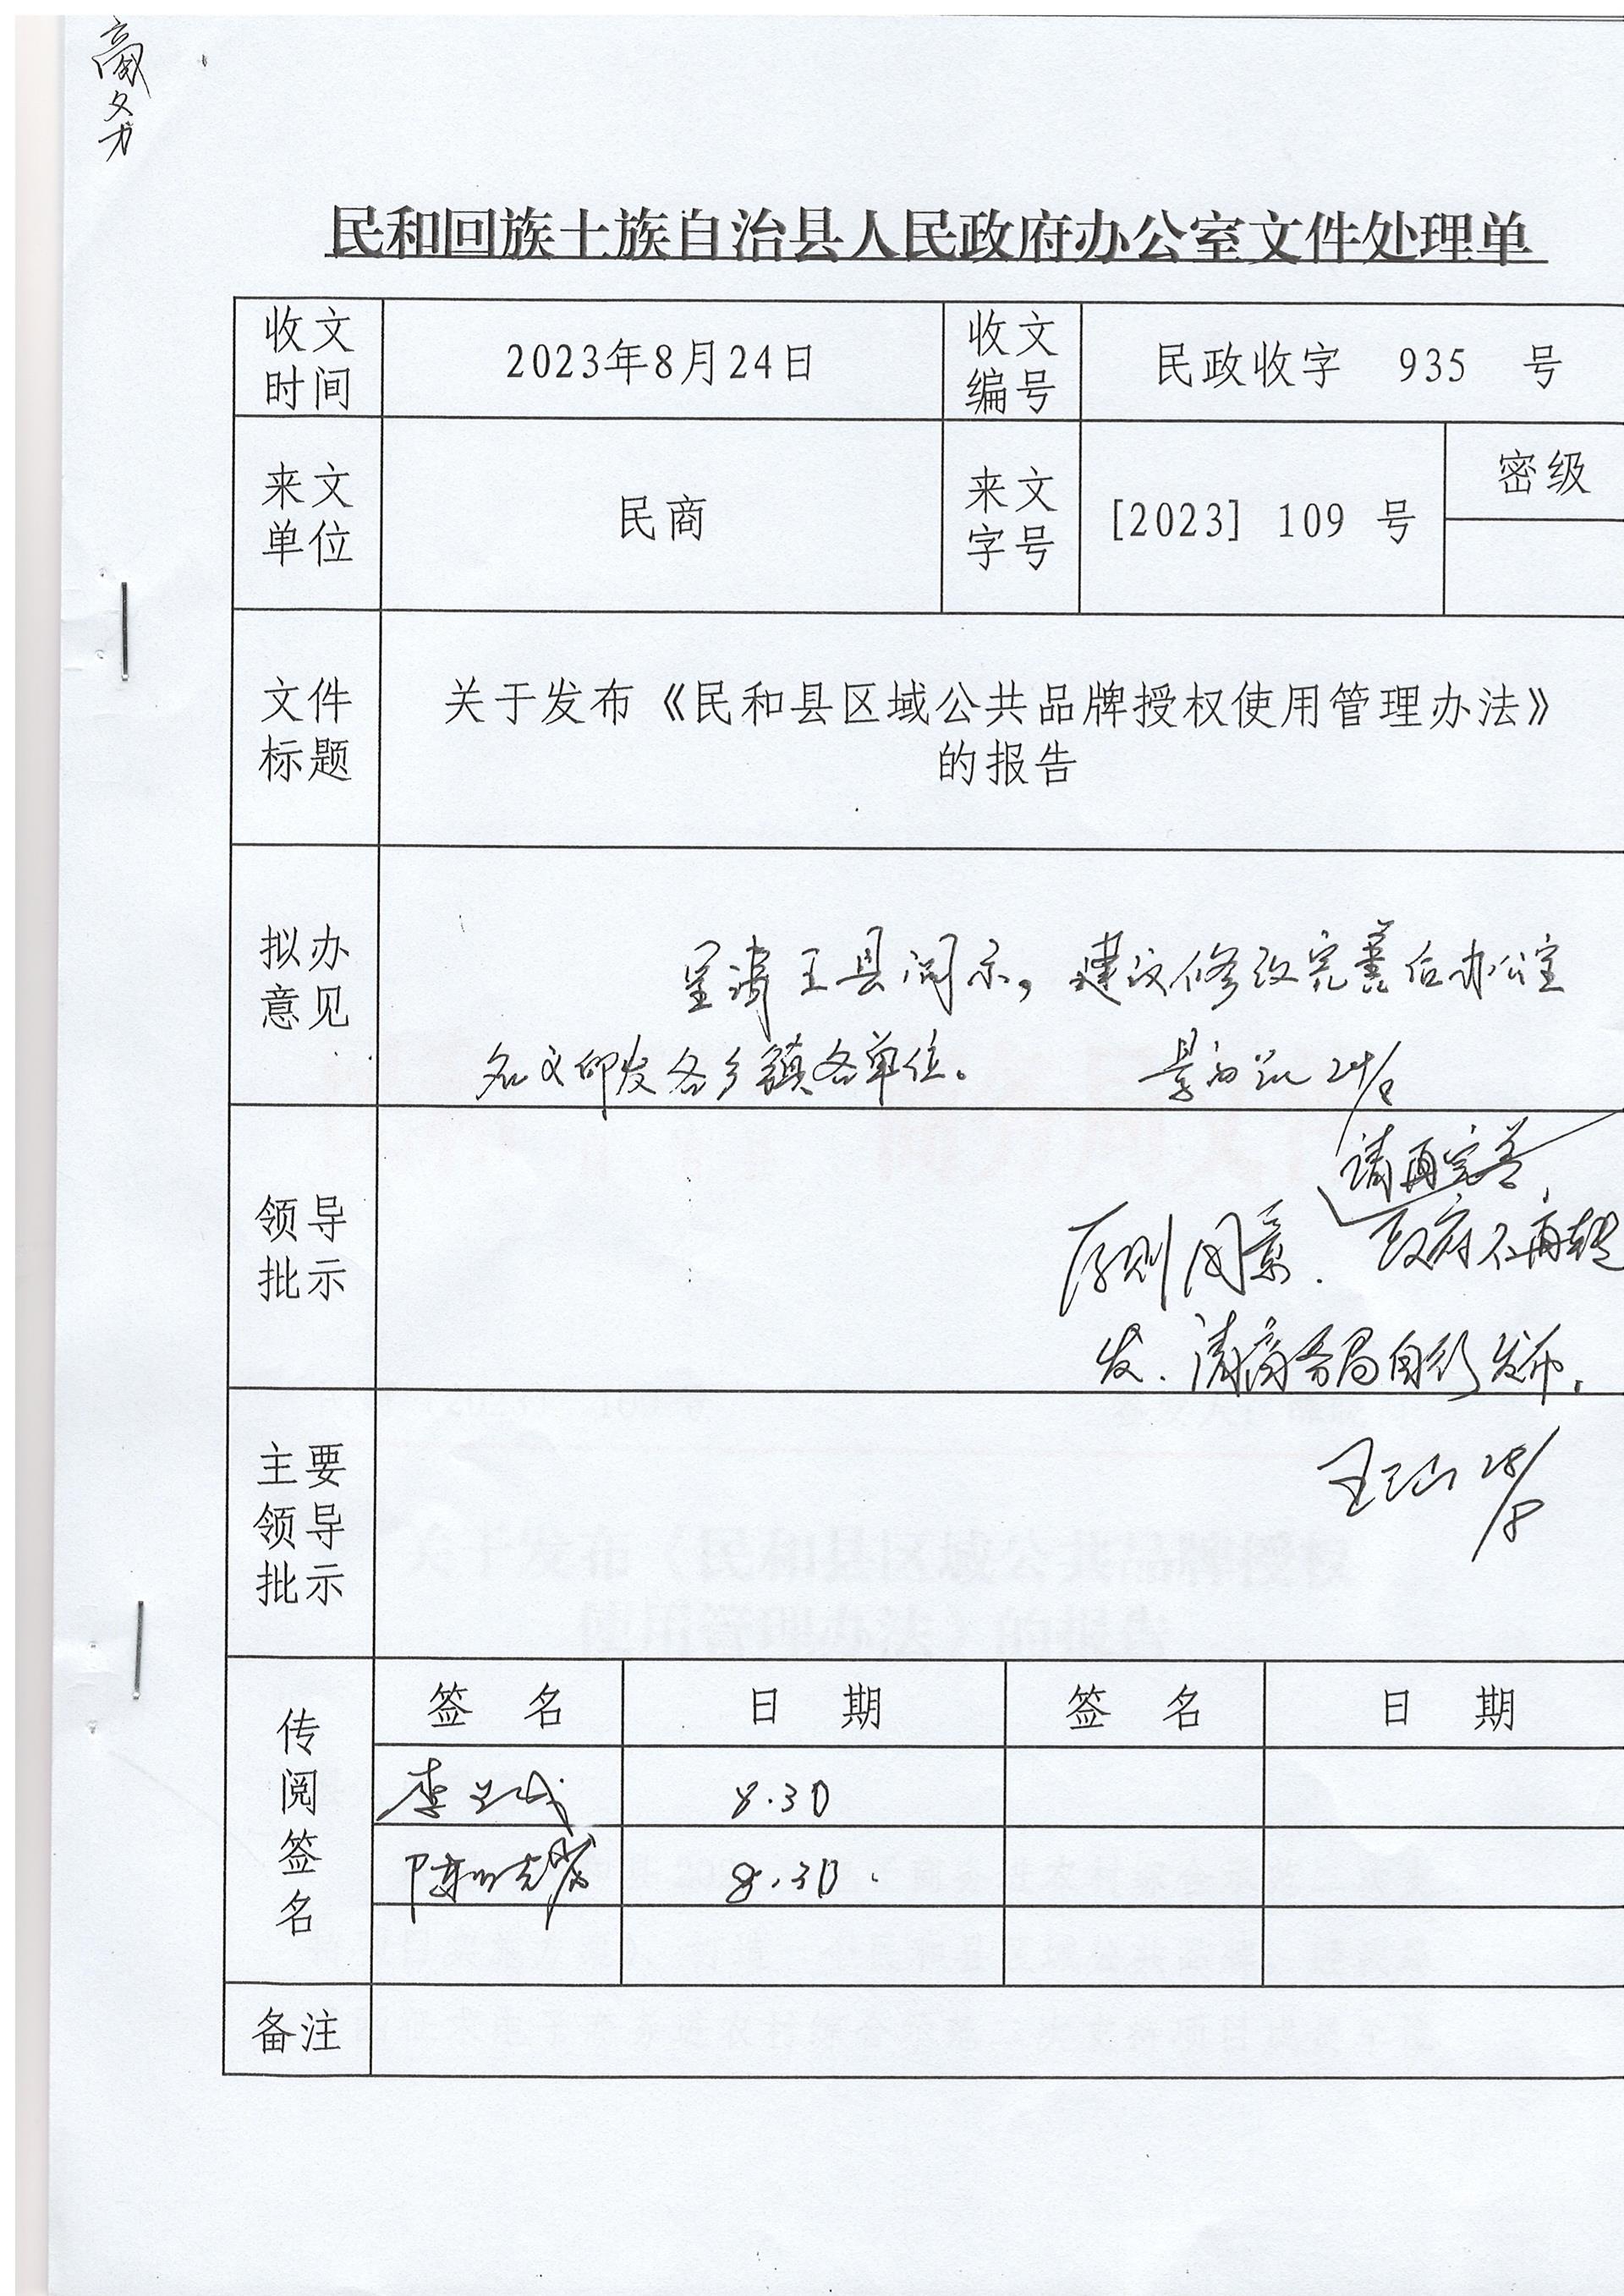 民和回族土族自治县人民政府办公室文件处理单
收文时间 2023年8月24日 收文编号 民政收字 935 号
来文单位 民商 来文字号 [2023] 109 号 密级
文件标题 关于发布《民和县区域公共品牌授权使用管理办法》
的报告
拟办意见 呈请王县阅示，建议修改完善后办公室
名义印发各乡镇各单位。 24/8
领导批示
请再完善
原则同意. 政府不再转
发.请商务局自行发布.
主要领导批示
王 28/8
传阅签名 签 名 日 期 签 名 日 期
李 8.30
陈 8.30.
备注